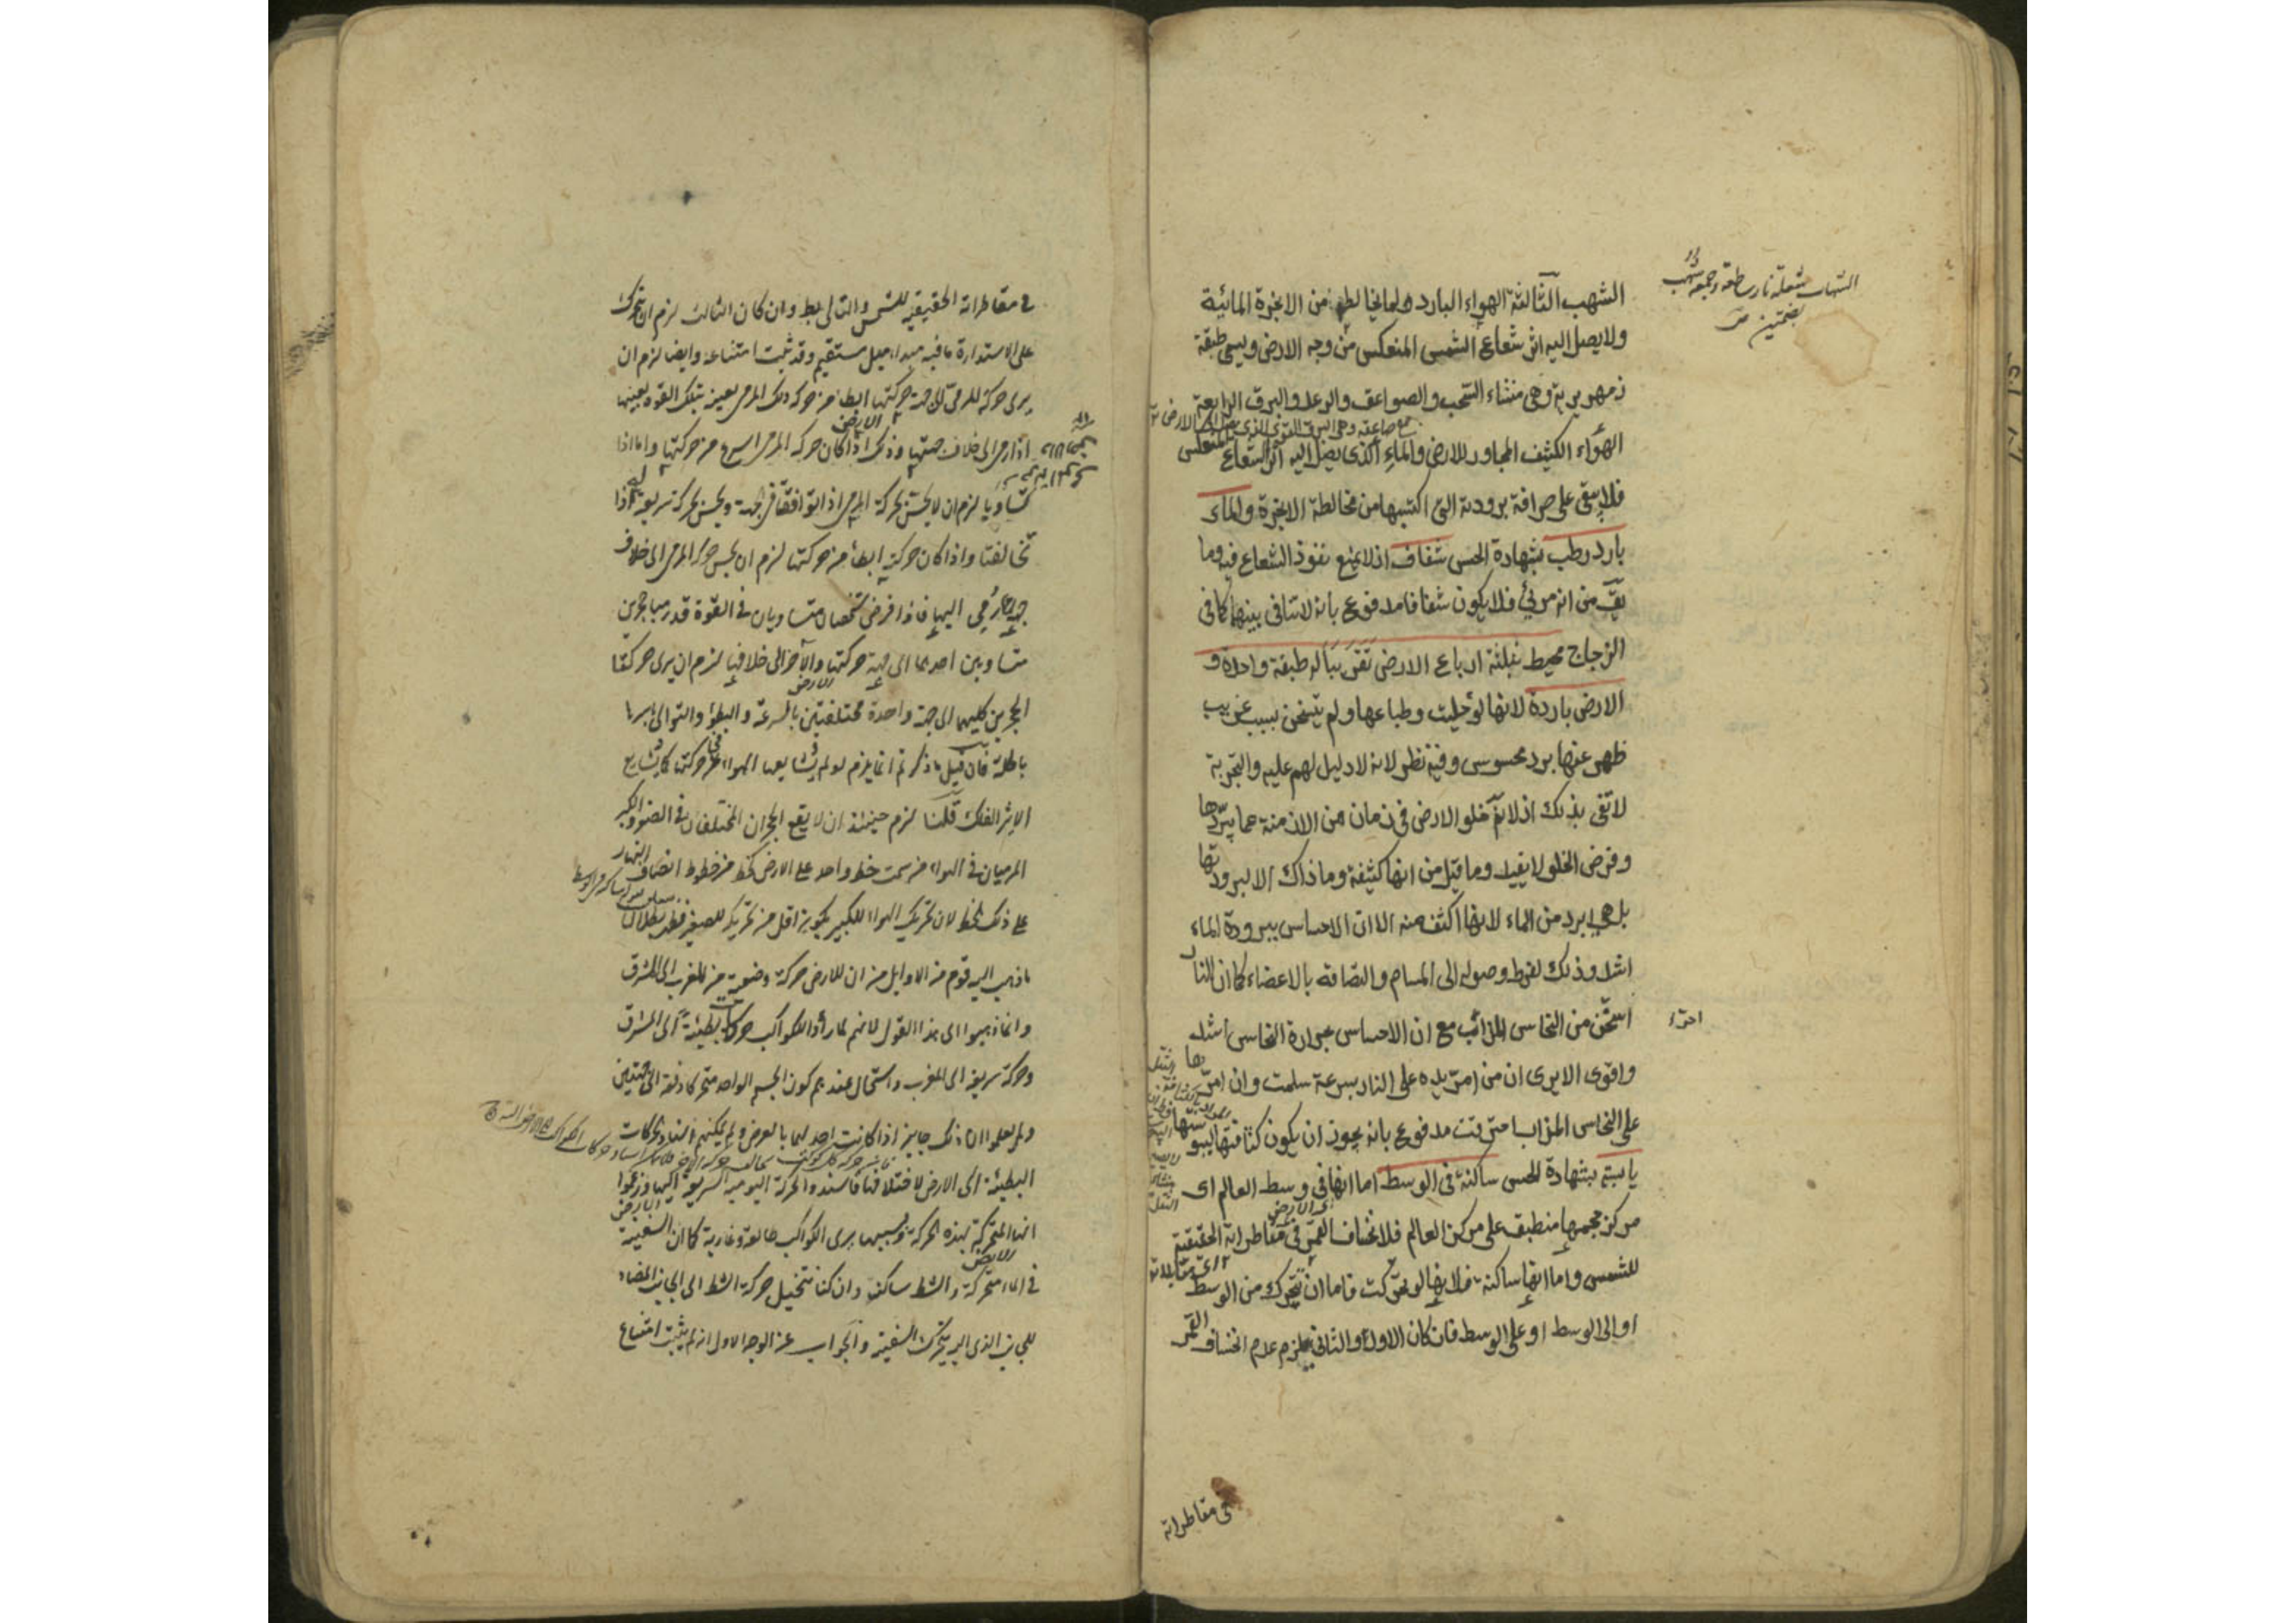 الشهب الثالثة الهواء البارد لما يخالطه من الابخرة المائية
ولا يصل اليه اثر شعاع الشمس المنعكس من وجه الارض ويسمى طبقة
زمهريرية وهى منشاء السحب والصواعق والرعد والبرق الرابعة
الهواء الكثيف المجاور للارض والماء الذى يصل اليه اثر الشعاع المنعكس
فلا يبقى على صرافة برودته التى اكتسبها من مخالطة الابخرة والماء
بارد رطب بشهادة الحس شفاف اذ لا يمنع نفوذ الشعاع فيه وما
يق من انه مرئي فلا يكون شفافا مدفوع بانه لا تنافى بينهما كما فى
الزجاج محيط بثلثة ارباع الارض تقريبا له طبقة واحدة و
الارض باردة لانها لو خليت وطباعها ولم يتسخن بسبب غريب
ظهر عنها برد محسوس وفيه نظر لانه لا دليل لهم عليه والتجربة
لا تفى بذلك اذ لا يم خلو الارض فى زمان من الازمنة عما يبردها
وفرض الخلو لا يفيد وما قيل من انها كثيفة وما ذاك الا لبرودتها
بل هى ابرد من الماء لانها اكثف منه الا ان الاحساس ببرودة الماء
اشد وذلك لفرط وصوله الى المسام والتصاقه بالاعضاء كما ان النار
اسخن من النحاس المذائب مع ان الاحساس بحرارة النحاس اشد
واقوى الا يرى ان من امر يده على النار بسرعة سلمت وان امرها
على النحاس المذاب احترقت مدفوع بانه يجوز ان يكون كثافتها ليبوستها
يابسة بشهادة الحس ساكنة فى الوسط اما انها فى وسط العالم اى
مركز حجمها منطبق على مركز العالم فلانخساف القمر فى مقاطراته الحقيقية
للشمس واما انها ساكنة فلانها لو تحركت فاما ان تتحرك من الوسط
او الى الوسط او على الوسط فان كان الاول او الثانى يلزم عدم انخساف القمر
فى مقاطراته
الشهاب شعلة نار ساطعة وجمعه شهب
بضمتين
فى مقاطراته الحقيقية للشمس والتالى بط وان كان الثالث لزم ان يتحرك
على الاستدارة ما فيه مبداء ميل مستقيم وقد ثبت امتناعه وايضا لزم ان
يرى حركة المرمى الى جهة حركتها ابطا من حركة ذلك المرمى بعينه بتلك القوة بعينها
اذا رمى الى خلاف جهتها وذلك اذا كان حركة المرمى اسرع من حركتها واما اذا
تساويا لزم ان لا يحس بحركة المرمى اذا توافقتا فى الجهة ويحس بحركة سريعة اذا
تخالفتا واذا كان حركته ابطأ من حركتها لزم ان يحس حركة المرمى الى خلاف
جهة رمى اليها فاذا فرض شخصان متساويان فى القوة قد رميا حجرين
متساويين احدهما الى جهة حركتها والآخر الى خلافها لزم ان يرى حركتا
الحجرين كليهما الى جهة واحدة مختلفتين بالسرعة والبطؤ والتوالى باسرها
باطلة فان قيل ما ذكرتم انما يلزم لو لم يشايعها الهواء فى حركتها كما يشايع
الاثير الفلك قلنا لزم حينئذ ان لا يقع الحجران المختلفان فى الصغر والكبر
المرميان فى الهواء من سمت خط واحد على الارض كخط من خطوط انصاف النهار
على ذلك الخط لان تحريك الهواء للكبير يكون اقل من تحريكه للصغير
ما ذهب اليه قوم من الاوايل من ان للارض حركة وضعية من المغرب الى المشرق
وانما ذهبوا الى هذا القول لانهم لما رأوا للكواكب حركات بطيئة الى المشرق
وحركة سريعة الى المغرب واستحال عندهم كون الجسم الواحد متحركا دفعة الى جهتين
ولم يعلموا ان ذلك جايز اذا كانت احديهما بالعرض ولم يمكنهم اسناد الحركات
البطيئة الى الارض لاختلافها فاسندوا الحركة اليومية السريعة اليها وزعموا
انها المتحركة بهذه الحركة وبسببها يرى الكواكب طالعة وغاربة كما ان السفينة
فى الماء متحركة والشط ساكنة وان كنا نتخيل حركة الشط الى الجانب المضاد
للجانب الذى اليه يتحرك السفينة والجواب عن الوجه الاول انه لم يثبت امتناع